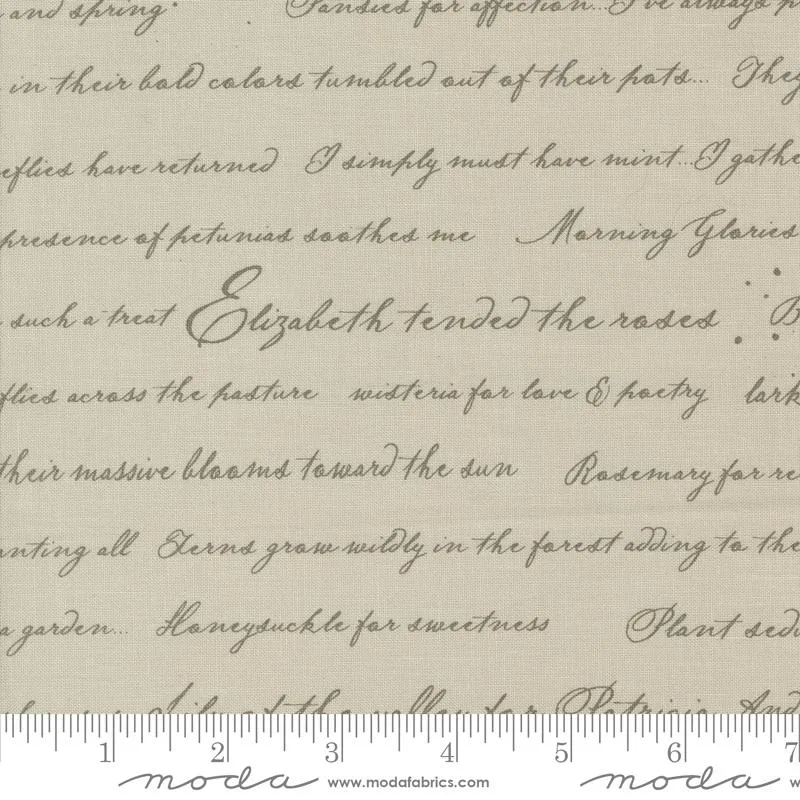 and spring
Pansies for affection...I've always p
in their bold colors tumbled out of their pots... They
eflies have returned I simply must have mint...I gathe
presence of petunias soothes me Morning Glories
such a treat Elizabeth tended the roses B
flies across the pasture wisteria for love & poetry lark
their massive blooms toward the sun Rosemary for re
anting all Ferns grow wildly in the forest adding to the
a garden... Honeysuckle for sweetness Plant sedu
Lily of the valley for Patricia And
1 2 3 4 5 6 7
moda www.modafabrics.com moda w